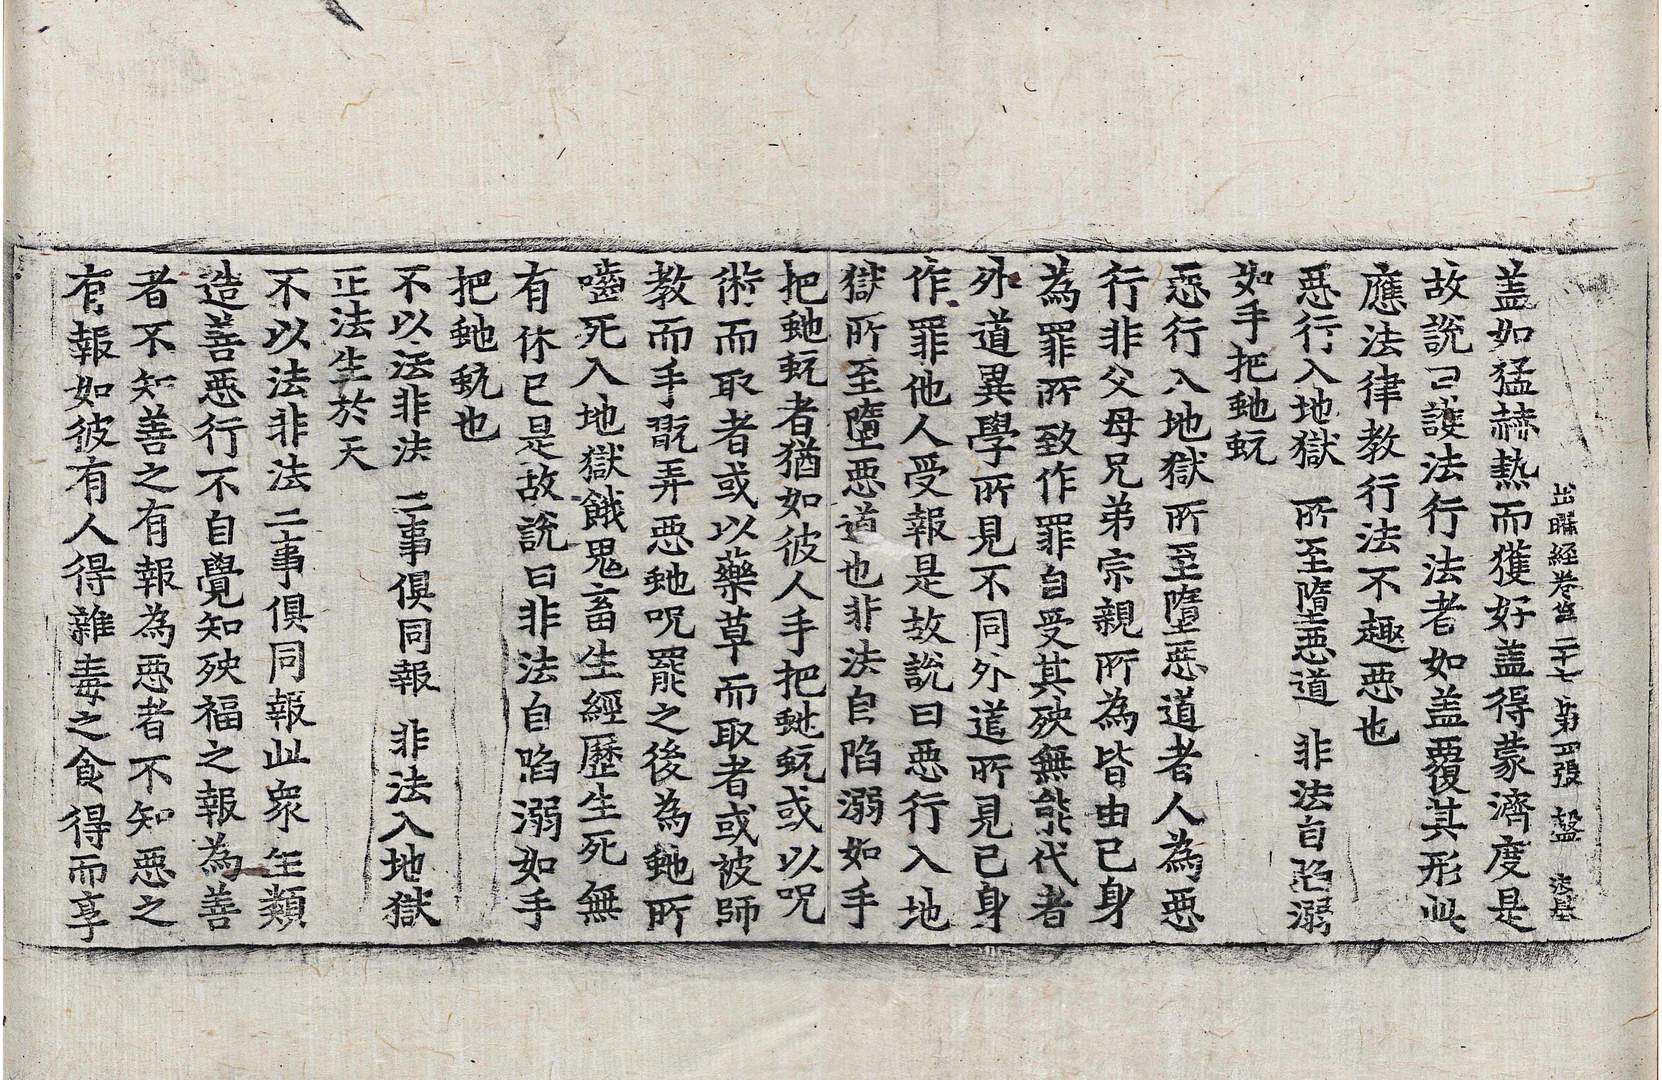 出曜經卷第二十七 第四張 盤
蓋如猛赫熱而獲好蓋得蒙濟度是
故說曰護法行法者如蓋覆其形此
應法律教行法不趣惡也
惡行入地獄 所至墮惡道 非法自陷溺
如手把虵蚖
惡行入地獄所至墮惡道者人為惡
行非父母兄弟宗親所為皆由己身
為罪所致作罪自受其殃無能代者
外道異學所見不同外道所見己身
作罪他人受報是故說曰惡行入地
獄所至墮惡道也非法自陷溺如手
把虵蚖者猶如彼人手把虵蚖或以呪
術而取者或以藥草而取者或被師
教而手翫弄惡虵呪罷之後為虵所
嚙死入地獄餓鬼畜生經歷生死無
有休已是故說曰非法自陷溺如手
把虵蚖也
不以法非法 二事俱同報 非法入地獄
正法生於天
不以法非法二事俱同報此眾生類
造善惡行不自覺知殃福之報為善
者不知善之有報為惡者不知惡之
有報如彼有人得雜毒之食得而享